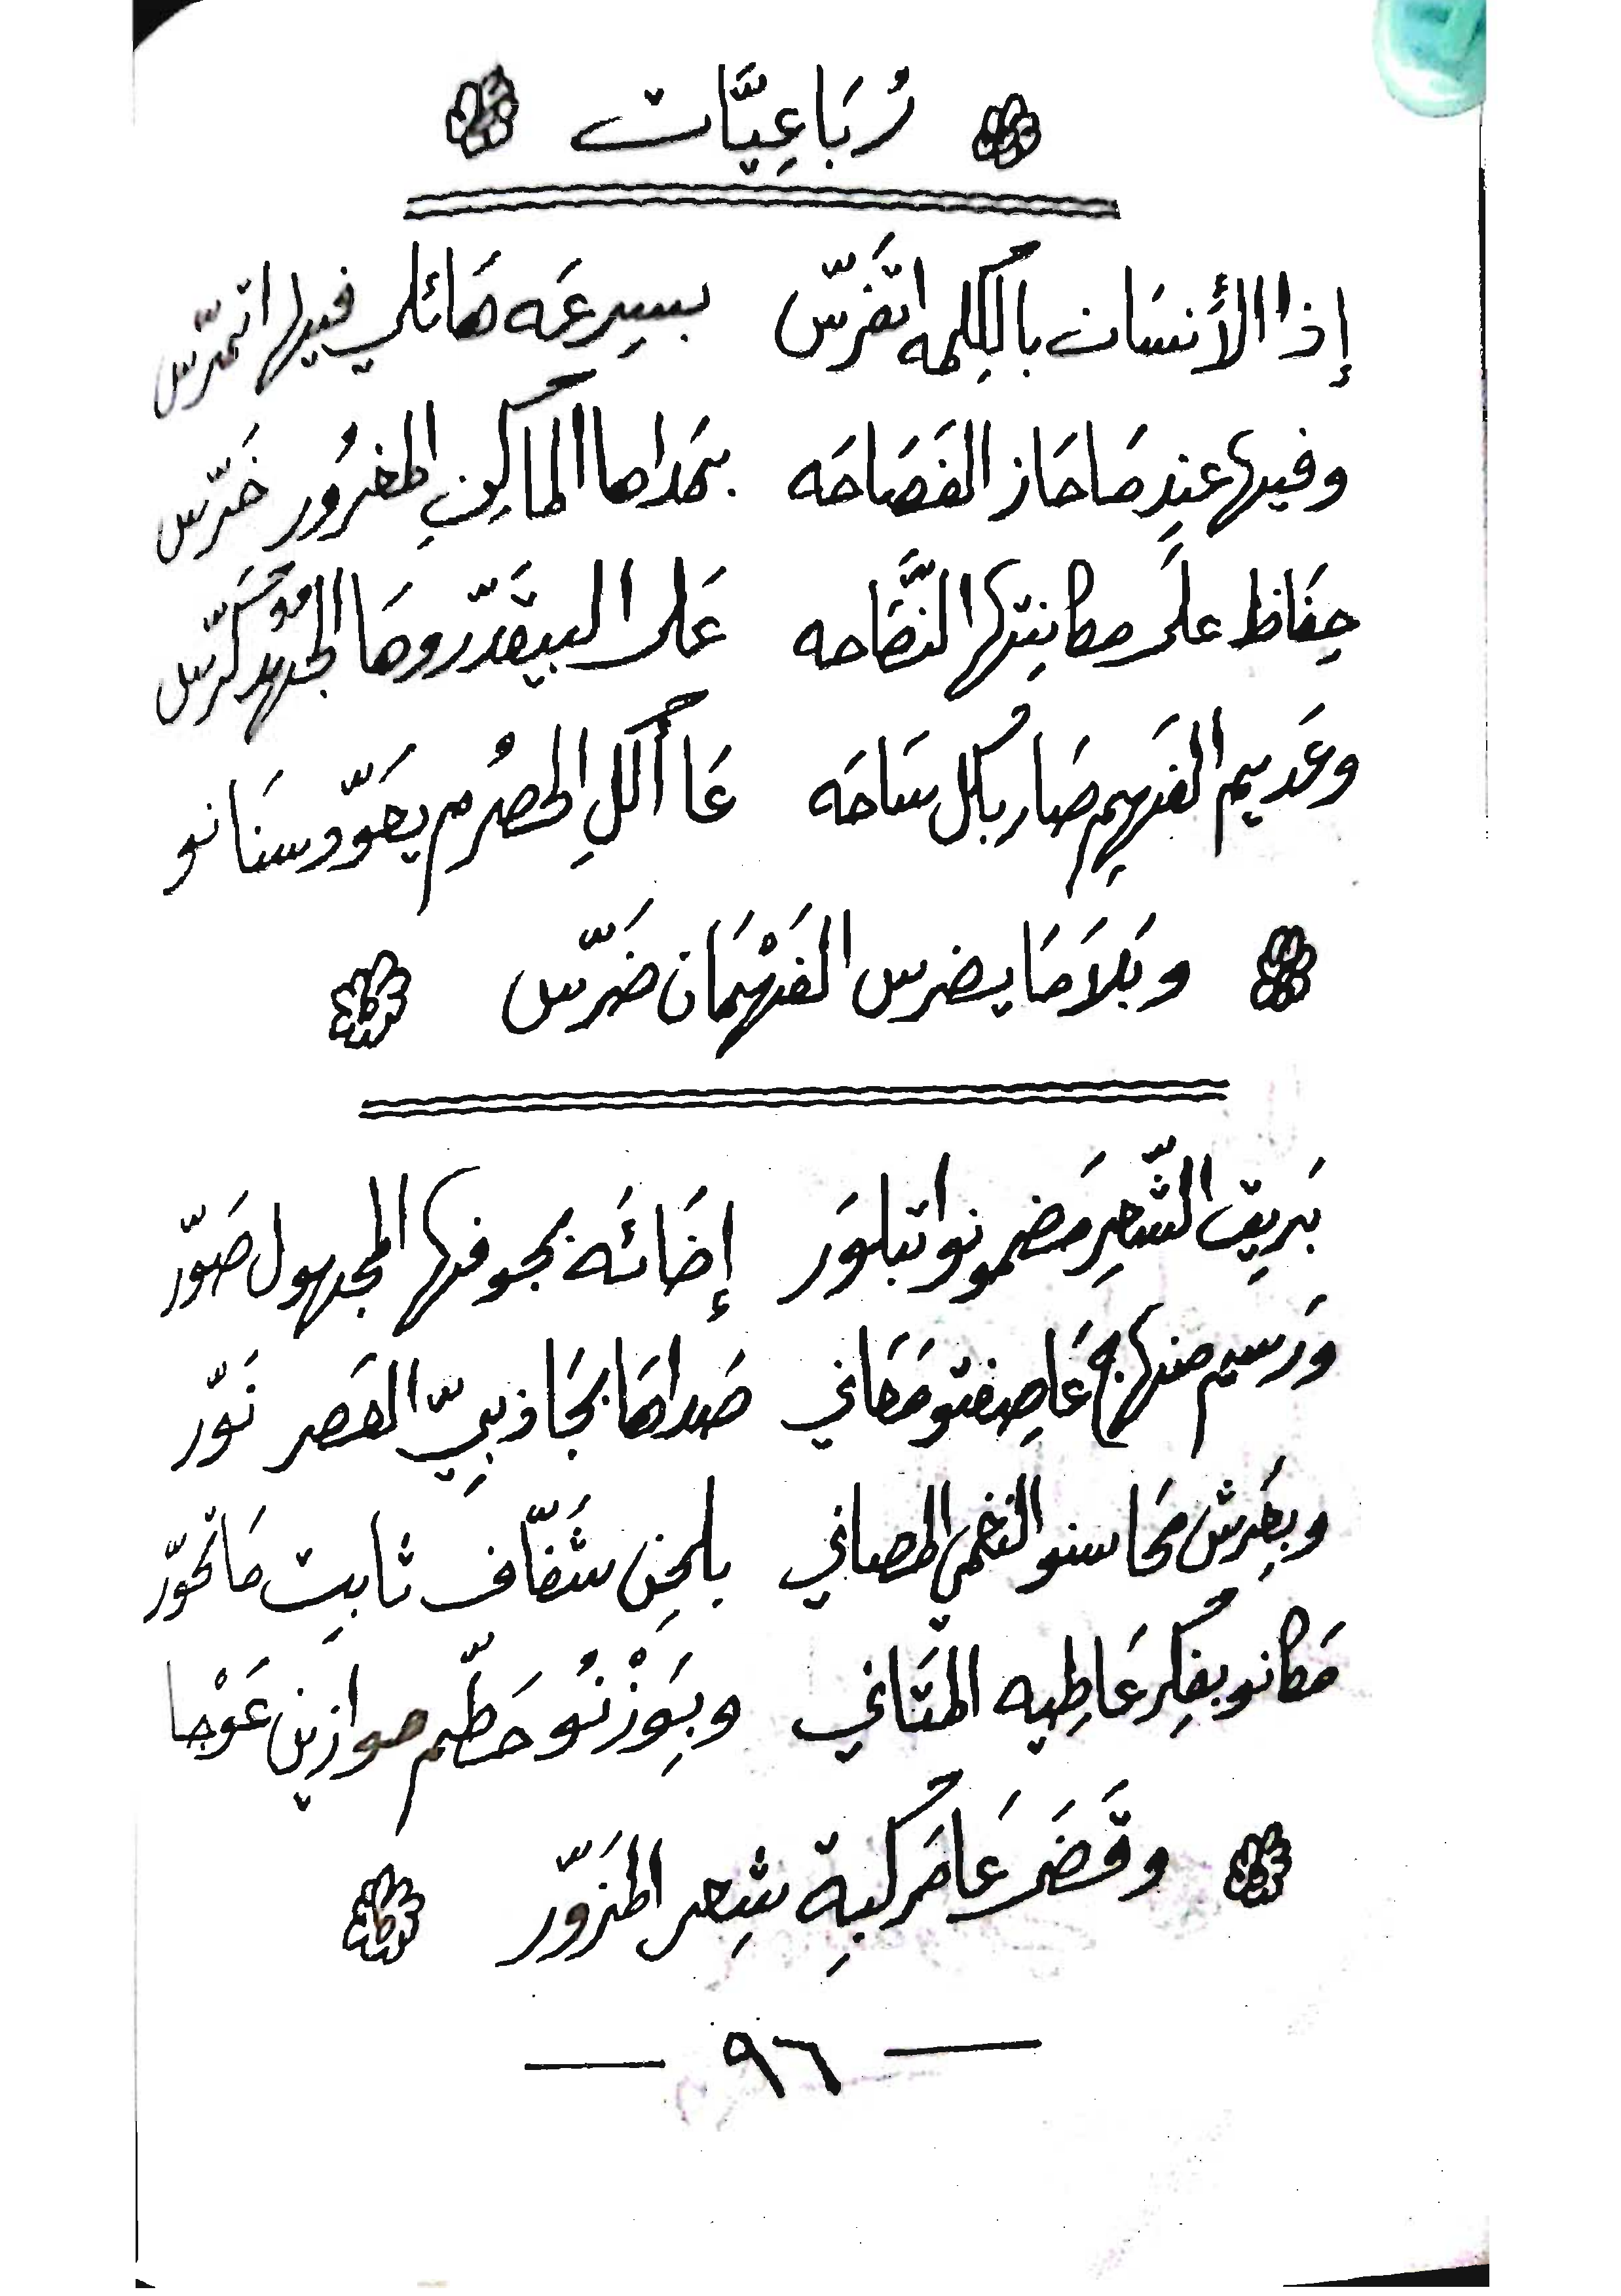 رُبَاعِيَّات
إذا الأنسَان بالكِلمه اتفَرّس بسِرعَه هَائلي فيها اتمرّس
وفيها عندِ مَا حَاز الفَصَاحَه بمَداها الماكِنِ المغرُور خَرّس
حِفَاظ علَى مكانِتها النَّصَاحه عَلى البيقَدّروهَا الجُهد كَرّس
وعَديم الفَهِم صَار بكل سَاحَه عَا أكلِ الحصرُم يعَوّد سنَانو
وبَلاَ مَا يضرس الفَهْمَان ضَرّس
بَرِيق الشّعِر مَضمونو اتبلوَر إضَائَه بجوفها المجهول صَوّر
ورَسيم منهاج عَاصِفتو مَعَاني صَداهَا بجَاذبِيّ العَصر نَوّر
وبِعَرش محَاسنو النغمي المصاني بلحنِ شَفّاف ثابِت مَا تحَوّر
مَكانو بفِكر عَاطِيه المتَاني وبِوَزْنُو حَطّم موازين عَوْجا
وقَضَى عَا مَركبِة شِعر المزَوّر
— ٩٦ —